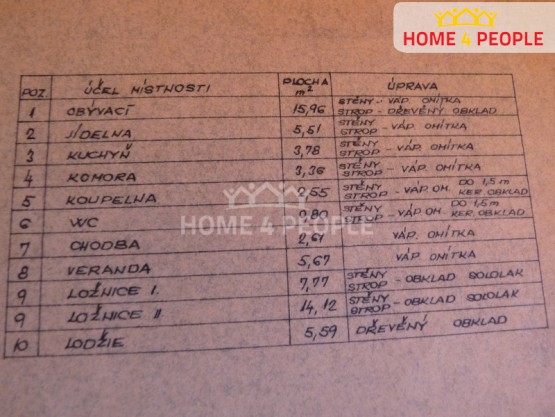 HOME 4 PEOPLE
POZ. ÚČEL MÍSTNOSTI PLOCHA m² ÚPRAVA
1 OBÝVACÍ 15,96 STĚNY - VÁP. OMÍTKA
STROP - DŘEVĚNÝ OBKLAD
2 JÍDELNA 5,51 STĚNY
STROP - VÁP. OMÍTKA
3 KUCHYŇ 3,78 STĚNY
STROP - VÁP. OMÍTKA
4 KOMORA 3,36 STĚNY
STROP - VÁP. OMÍTKA
5 KOUPELNA 2,55 STĚNY
STROP - VÁP. OM. DO 1,5 m
KER. OBKLAD
6 WC 0,80 STĚNY
STROP - VÁP. OM. DO 1,5 m
KER. OBKLAD
HOME 4 PEOPLE
7 CHODBA 2,61 VÁP. OMÍTKA
8 VERANDA 5,67 VÁP. OMÍTKA
9 LOŽNICE I. 7,77 STĚNY
STROP - OBKLAD SOLOLAK
9 LOŽNICE II 14,12 STĚNY
STROP - OBKLAD SOLOLAK
10 LODŽIE 5,59 DŘEVĚNÝ OBKLAD